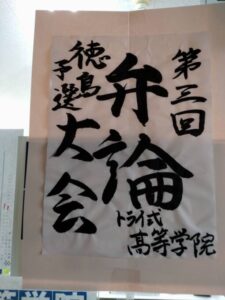 第三回
弁論大会
徳島予選
トライ式高等学院